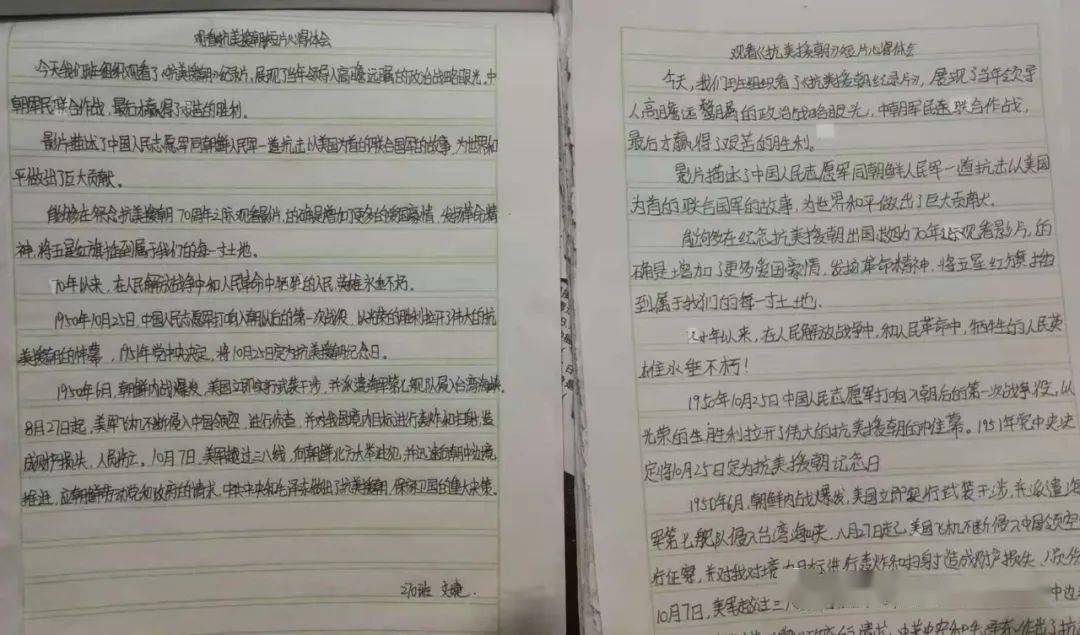 观看抗美援朝短片心得体会
今天我们班组织观看了《抗美援朝》纪录片,展现了当年领导人高瞻远瞩的政治战略眼光,中
朝军民联合作战,最后才赢得了艰苦的胜利。
影片描述了中国人民志愿军同朝鲜人民军一道抗击以美国为首的联合国军的故事,为世界和
平做出了巨大贡献。
能够在纪念抗美援朝70周年之际观看影片,的确是增加了更多的爱国豪情,发扬革命精
神,将五星红旗插到属于我们的每一寸土地。
70年以来,在人民解放战争中和人民革命中牺牲的人民英雄永垂不朽。
1950年10月25日,中国人民志愿军打响入朝以后的第一次战役,以光荣的胜利拉开了伟大的抗
美援朝的帷幕,1951年党中央决定,将10月25日定为抗美援朝纪念日。
1950年6月,朝鲜内战爆发,美国立即实行武装干涉,并派遣海军第七舰队侵入台湾海峡。
8月27日起,美军飞机不断侵入中国领空,进行侦查,并对我国境内目标进行轰炸和扫射,造
成财产损失,人员伤亡。10月7日,美军越过三八线,向朝鲜北方大举进犯,并迅速向朝中边境
推进,应朝鲜劳动党和政府的请求,中共中央和毛泽东做出了抗美援朝,保家卫国的重大决策。
270班
观看《抗美援朝》短片心得体会
今天,我们班组织看了《抗美援朝纪录片》,展现了当年领导
人高瞻远瞩的政治战略眼光,中朝军民联合作战,
最后才赢得了艰苦的胜利。
影片描述了中国人民志愿军同朝鲜人民军一道抗击以美国
为首的联合国军的故事,为世界和平做出了巨大贡献。
能够在纪念抗美援朝出国作战70年之际观看影片,的
确是增加了更多爱国豪情,发扬革命精神,将五星红旗插
到属于我们的每一寸土地。
年以来,在人民解放战争中,和人民革命中,牺牲的人民英
雄永垂不朽!
1950年10月25日中国人民志愿军打响入朝后的第一次战役,以
光荣的胜利拉开了伟大的抗美援朝的帷幕。1951年党中央决
定将10月25日定为抗美援朝纪念日
1950年6月,朝鲜内战爆发,美国立即实行武装干涉,并派遣海
军第七舰队侵入台湾海峡,八月27日起,美国飞机不断侵入中国领空
行侦察,并对我境内目标进行轰炸和扫射造成财产损失、人员伤
10月7日,美军越过三八 中边